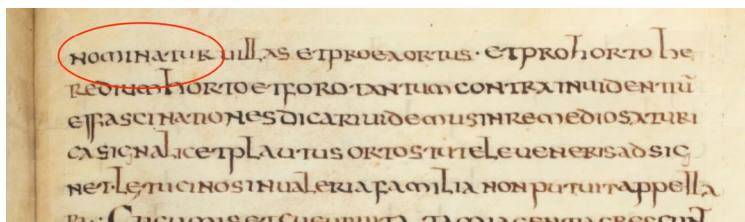 nominatur uillas et pro ea ortus · et pro horto he
redium horto et foro tantum contra inuidentiū
effascinationes dicari uidemus in remedio saturi
ca signa licet plautus ortos tutele ueneris adsig
net · leticinos in ualeria familia non putuit appella